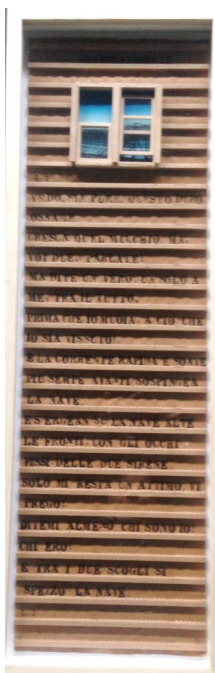 [...]
VEDO, SIA PURE, MUCCHIO D'
OSSA, E
PRESSA QUEL MUCCHIO. MA,
VOI DUE, PARLATE!
MA DITE UN VERO, UN SOLO A
ME, FRA IL TUTTO,
PRIMA CHE IO MUOIA, A CIÒ CHE
IO SIA VISSUTO!
E LA CORRENTE RAPIDA E SOAVE
PIÙ SEMPE AVANTI SOSPINGEA
LA NAVE
E S'ERGEAN SU LA NAVE ALTE
LE FRONTI, CON GLI OCCHI
FISSI DELLE DUE SIRENE
SOLO MI RESTA UN ATTIMO VI
PREGO!
DITEMI ALMENO CHI SONO IO!
CHI ERO!
E TRA I DUE SCOGLI SI
SPEZZÒ LA NAVE
[...]